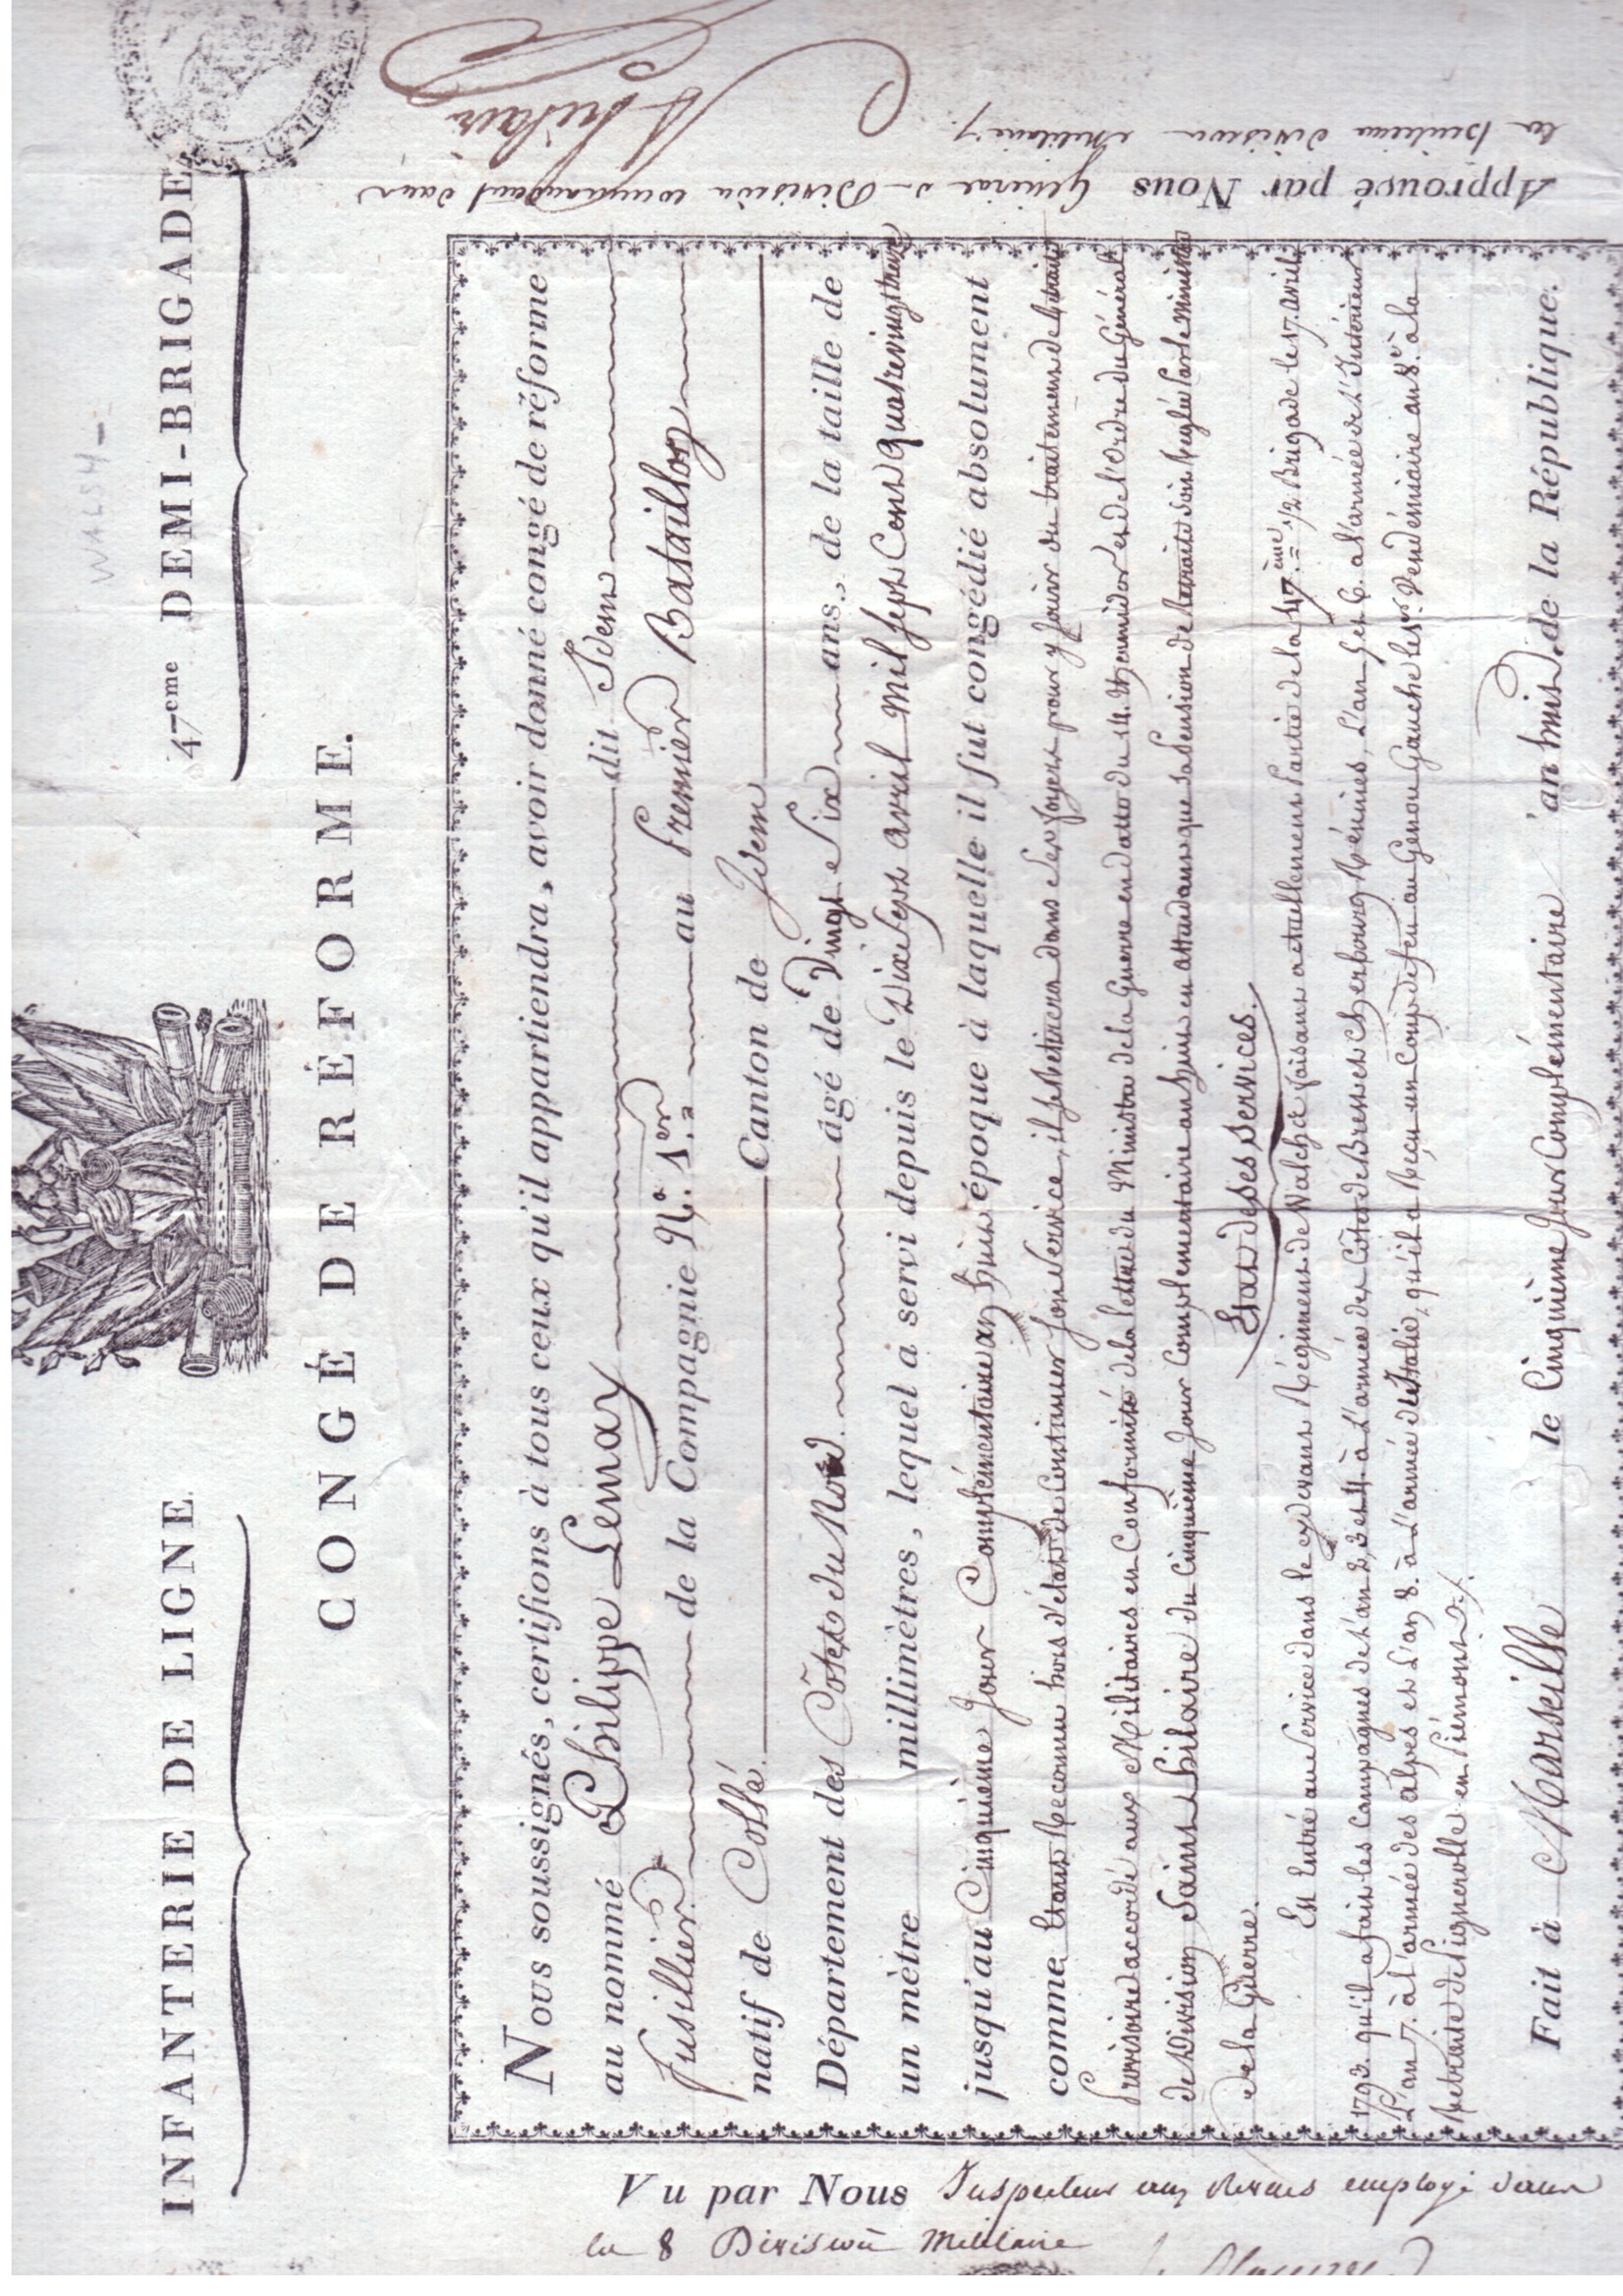 WALSH
INFANTERIE DE LIGNE
47eme DEMI-BRIGADE
CONGÉ DE RÉFORME.
Nous soussignés, certifions à tous ceux qu'il appartiendra, avoir donné congé de réforme
au nommé Philippe Lemay dit Idem
Fusillier de la Compagnie N.º 1.er au Premier Bataillon
natif de Collé Canton de Idem
Département des Côtes du Nord âgé de Vingt Six ans, de la taille de
un mètre millimètres, lequel a servi depuis le Dix Sept avril Mil Sept Cent Quatrevingt treize
jusqu'au Cinquième Jour Complémentaire an huit époque à laquelle il fut congédié absolument
comme étant Reconnu hors d'état de Continuer Son Service, il se Retirera dans ses foyers pour y Jouir du traitement de Retraite
Provisoire accordé aux Militaires en Conformité de la lettre du Ministre de la Guerre en datte du 14. thermidor et de l'Ordre du Général
de Division Saint hilaire du Cinquième Jour Complementaire an huit en attendant que sa Pension de Retraite soit Reglée Par le Ministre
de la Guerre.
Etat de ses Services.
Est Entré au Service dans le cydevant Régiment de Walche faisant actuellement Partie de la 47.ème 1/2 Brigade le 17. avril
1793. qu'il a fait les Campagnes de l'an 2, 3 et 4 à L'armée des Côtes de Brest et Cherbourg Réunies, L'an 5 et 6. a l'armée de L'Intérieur
L'an 7. à l'armée des alpes et L'an 8. à L'armée de Italie, qu'il a Reçu un Coup de feu au Genou Gauche le 5 Vendémiaire an 8.e à la
Retraite de Pignerolle en Piémont.
Fait à Marseille le Cinquième Jour Complémentaire an huit de la République.
Vu par Nous Inspecteur aux Revues employé dans
la 8 Division Militaire
Approuvé par Nous Général de Division commandant dans
la huitieme division Militaire
St hilaire